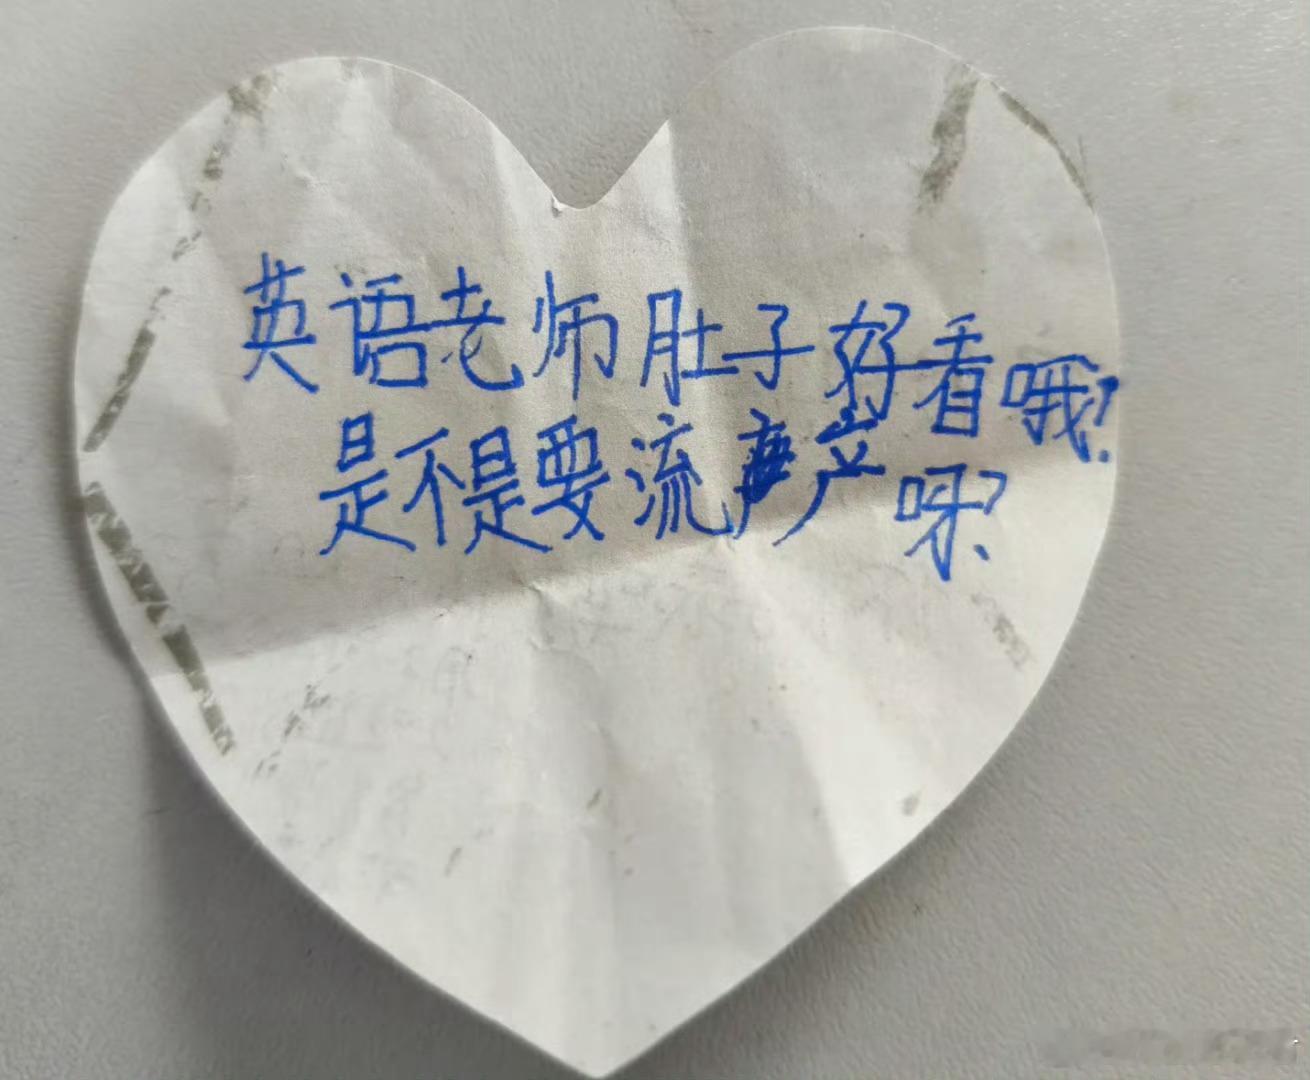 英语老师肚子好看哦?
是不是要流产呀?